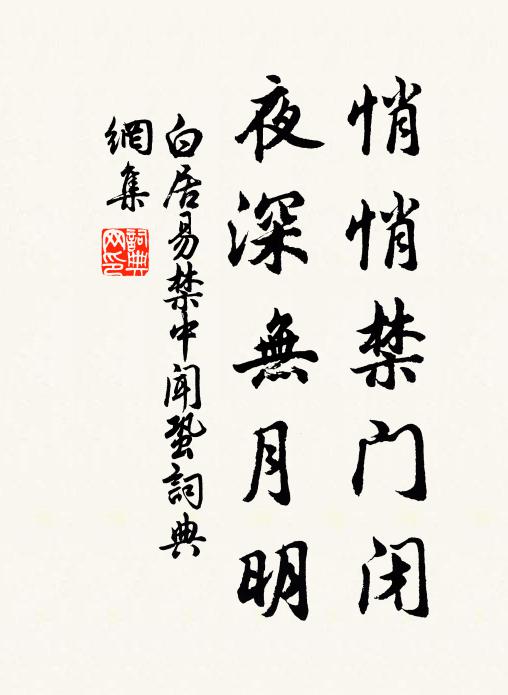 悄悄禁门闭
夜深無月明
白居易禁中闻蛩詞典
網集
詞典
网印